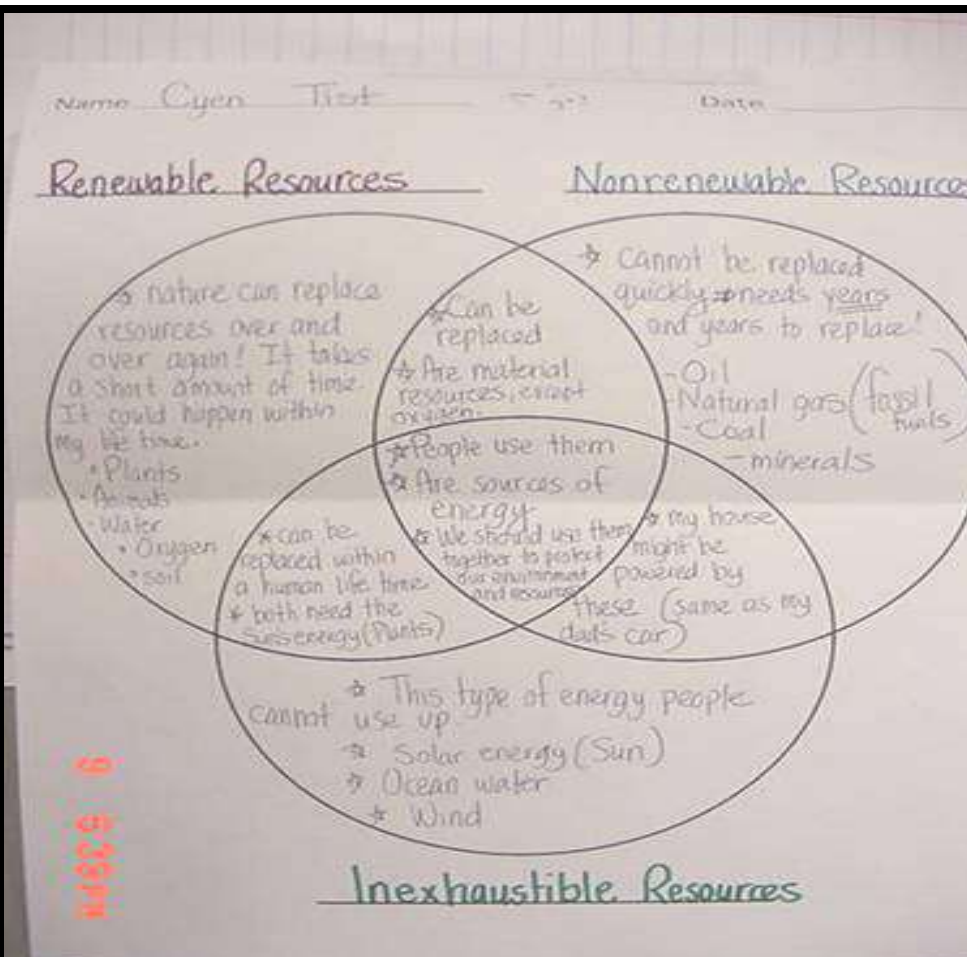 Name Cyen
Date
Renewable Resources
Nonrenewable Resources
☆ nature can replace
resources over and
over again! It takes
a short amount of time.
It could happen within
my life time.
• Plants
• Animals
• Water
• Oxygen
• soil
☆ Can be
replaced
☆ Are material
resources, except
oxygen.
☆ Cannot be replaced
quickly needs years
and years to replace!
- Oil
- Natural gas (fossil
fuels)
- Coal
- minerals
☆ People use them
☆ Are sources of
energy
☆ We should use them
together to protect
our environment
and resources
* can be
replaced within
a human life time
* both need the
suns energy (Plants)
☆ my house
might be
powered by
these (same as my
dads car)
☆ This type of energy people
cannot use up
☆ Solar energy (Sun)
☆ Ocean water
☆ Wind
Inexhaustible Resources